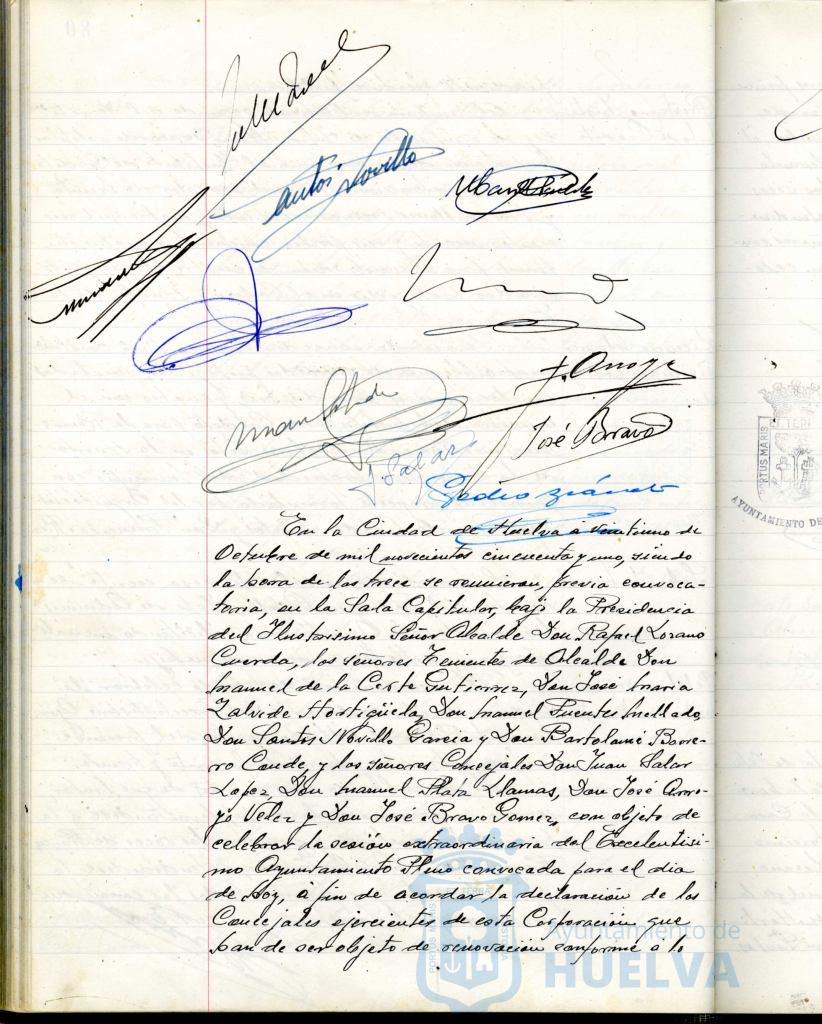 Santos Novillo
J. Arroyo
José Bravo
J. Salar
Pedro
En la Ciudad de Huelva a veintiuno de
Octubre de mil novecientos cincuenta y uno, siendo
la hora de las trece se reunieron, previa convoca-
toria, en la Sala Capitular, bajo la Presidencia
del Ilustrisimo Señor Alcalde Don Rafael Lozano
Cuerda, los señores Tenientes de Alcalde Don
Manuel de la Corte Gutierrez, Don José Maria
Zalvide Hortigüela, Don Manuel Fuentes Mellado,
Don Santos Novillo Garcia y Don Bartolomé Borre-
ro Conde, y los señores Concejales Don Juan Salar
Lopez, Don Manuel Plata Llamas, Don José Arro-
yo Velez y Don José Bravo Gomez, con objeto de
celebrar la sesión extraordinaria del Excelentisi-
mo Ayuntamiento Pleno convocada para el dia
de hoy, á fin de acordar la declaración de los
Concejales ejercientes de esta Corporación que
han de ser objeto de renovación conforme á lo
Ayuntamiento de
HUELVA
PORTUS MARIS
AYUNTAMIENTO DE